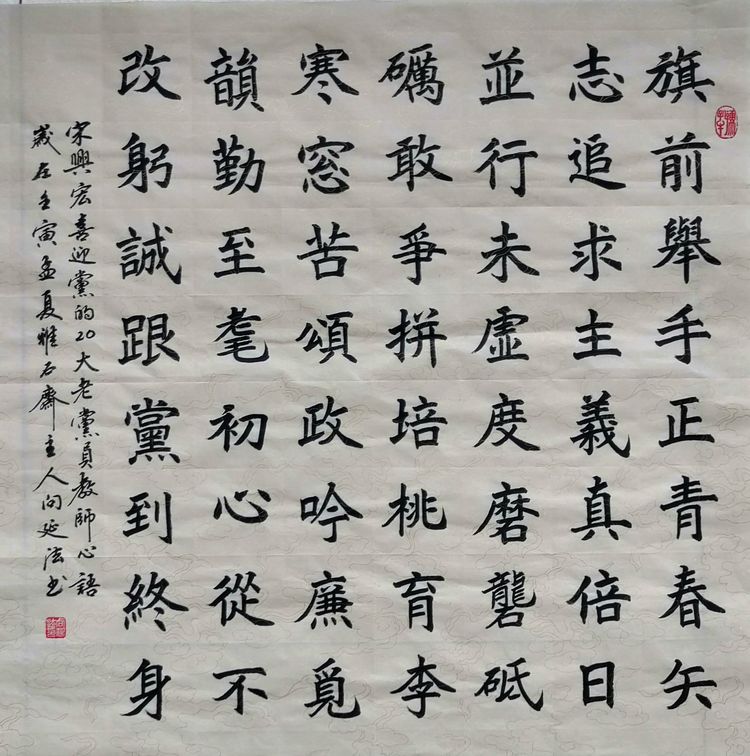 旗前舉手正青春矢
志追求主義真倍日
並行未虛度磨礱砥
礪敢爭拼培桃育李
寒窓苦頌政吟廉覓
韻勤至耄初心從不
改躬誠跟黨到終身
宋興宏喜迎黨的20大老黨員教師心語
歲在壬寅孟夏雅石齋主人向延法书